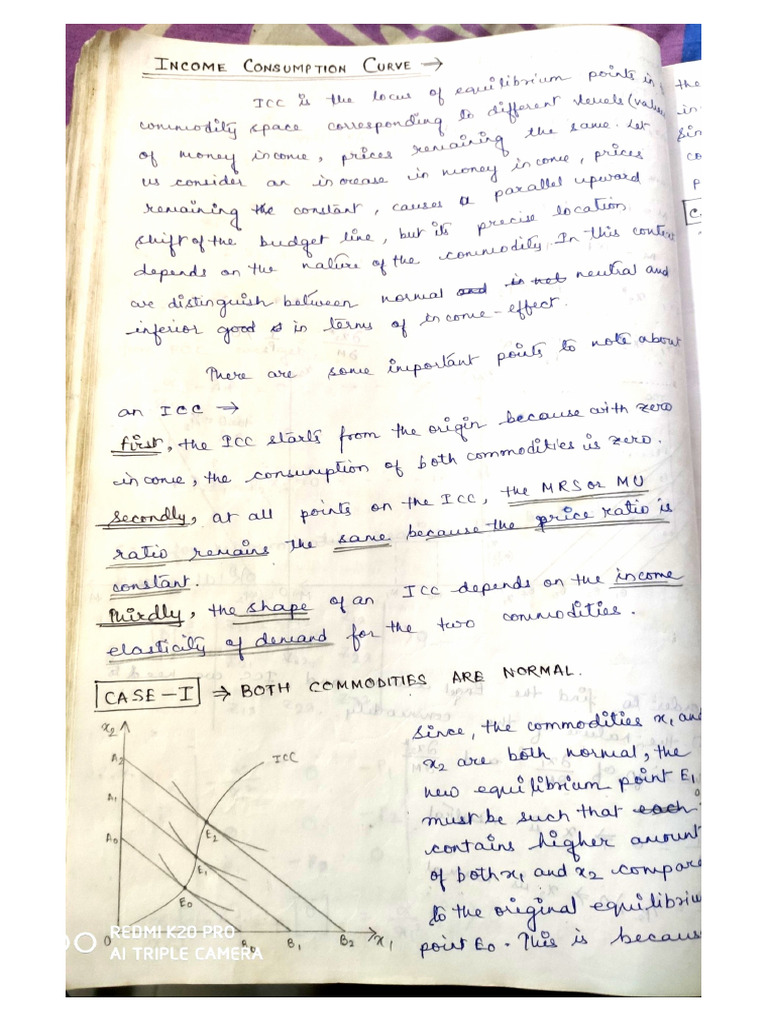 INCOME CONSUMPTION CURVE →
ICC is the locus of equilibrium points in
commodity space corresponding to different levels (value
of money income, prices remaining the same. Let
us consider an increase in money income, prices
remaining the constant, causes a parallel upward
shift of the budget line, but its precise location
depends on the nature of the commodity. In this context
we distinguish between normal and in not neutral and
inferior good s in terms of income-effect.
There are some important points to note about
an ICC →
first, the ICC starts from the origin because with zero
income, the consumption of both commodities is zero.
Secondly, at all points on the ICC, the MRS or MU
ratio remains the same because the price ratio is
constant.
Thirdly, the shape of an ICC depends on the income
elasticity of demand for the two commodities.
CASE-I → BOTH COMMODITIES ARE NORMAL.
x2
A2
A1
A0
ICC
E2
E1
E0
O
B0
B1
B2
x1
Since, the commodities x1 and
x2 are both normal, the
new equilibrium point E1
must be such that each
contains higher amount
of both x1 and x2 compare
to the original equilibriu
point E0. This is because
the
in
Sin
co
P
C
REDMI K20 PRO
AI TRIPLE CAMERA